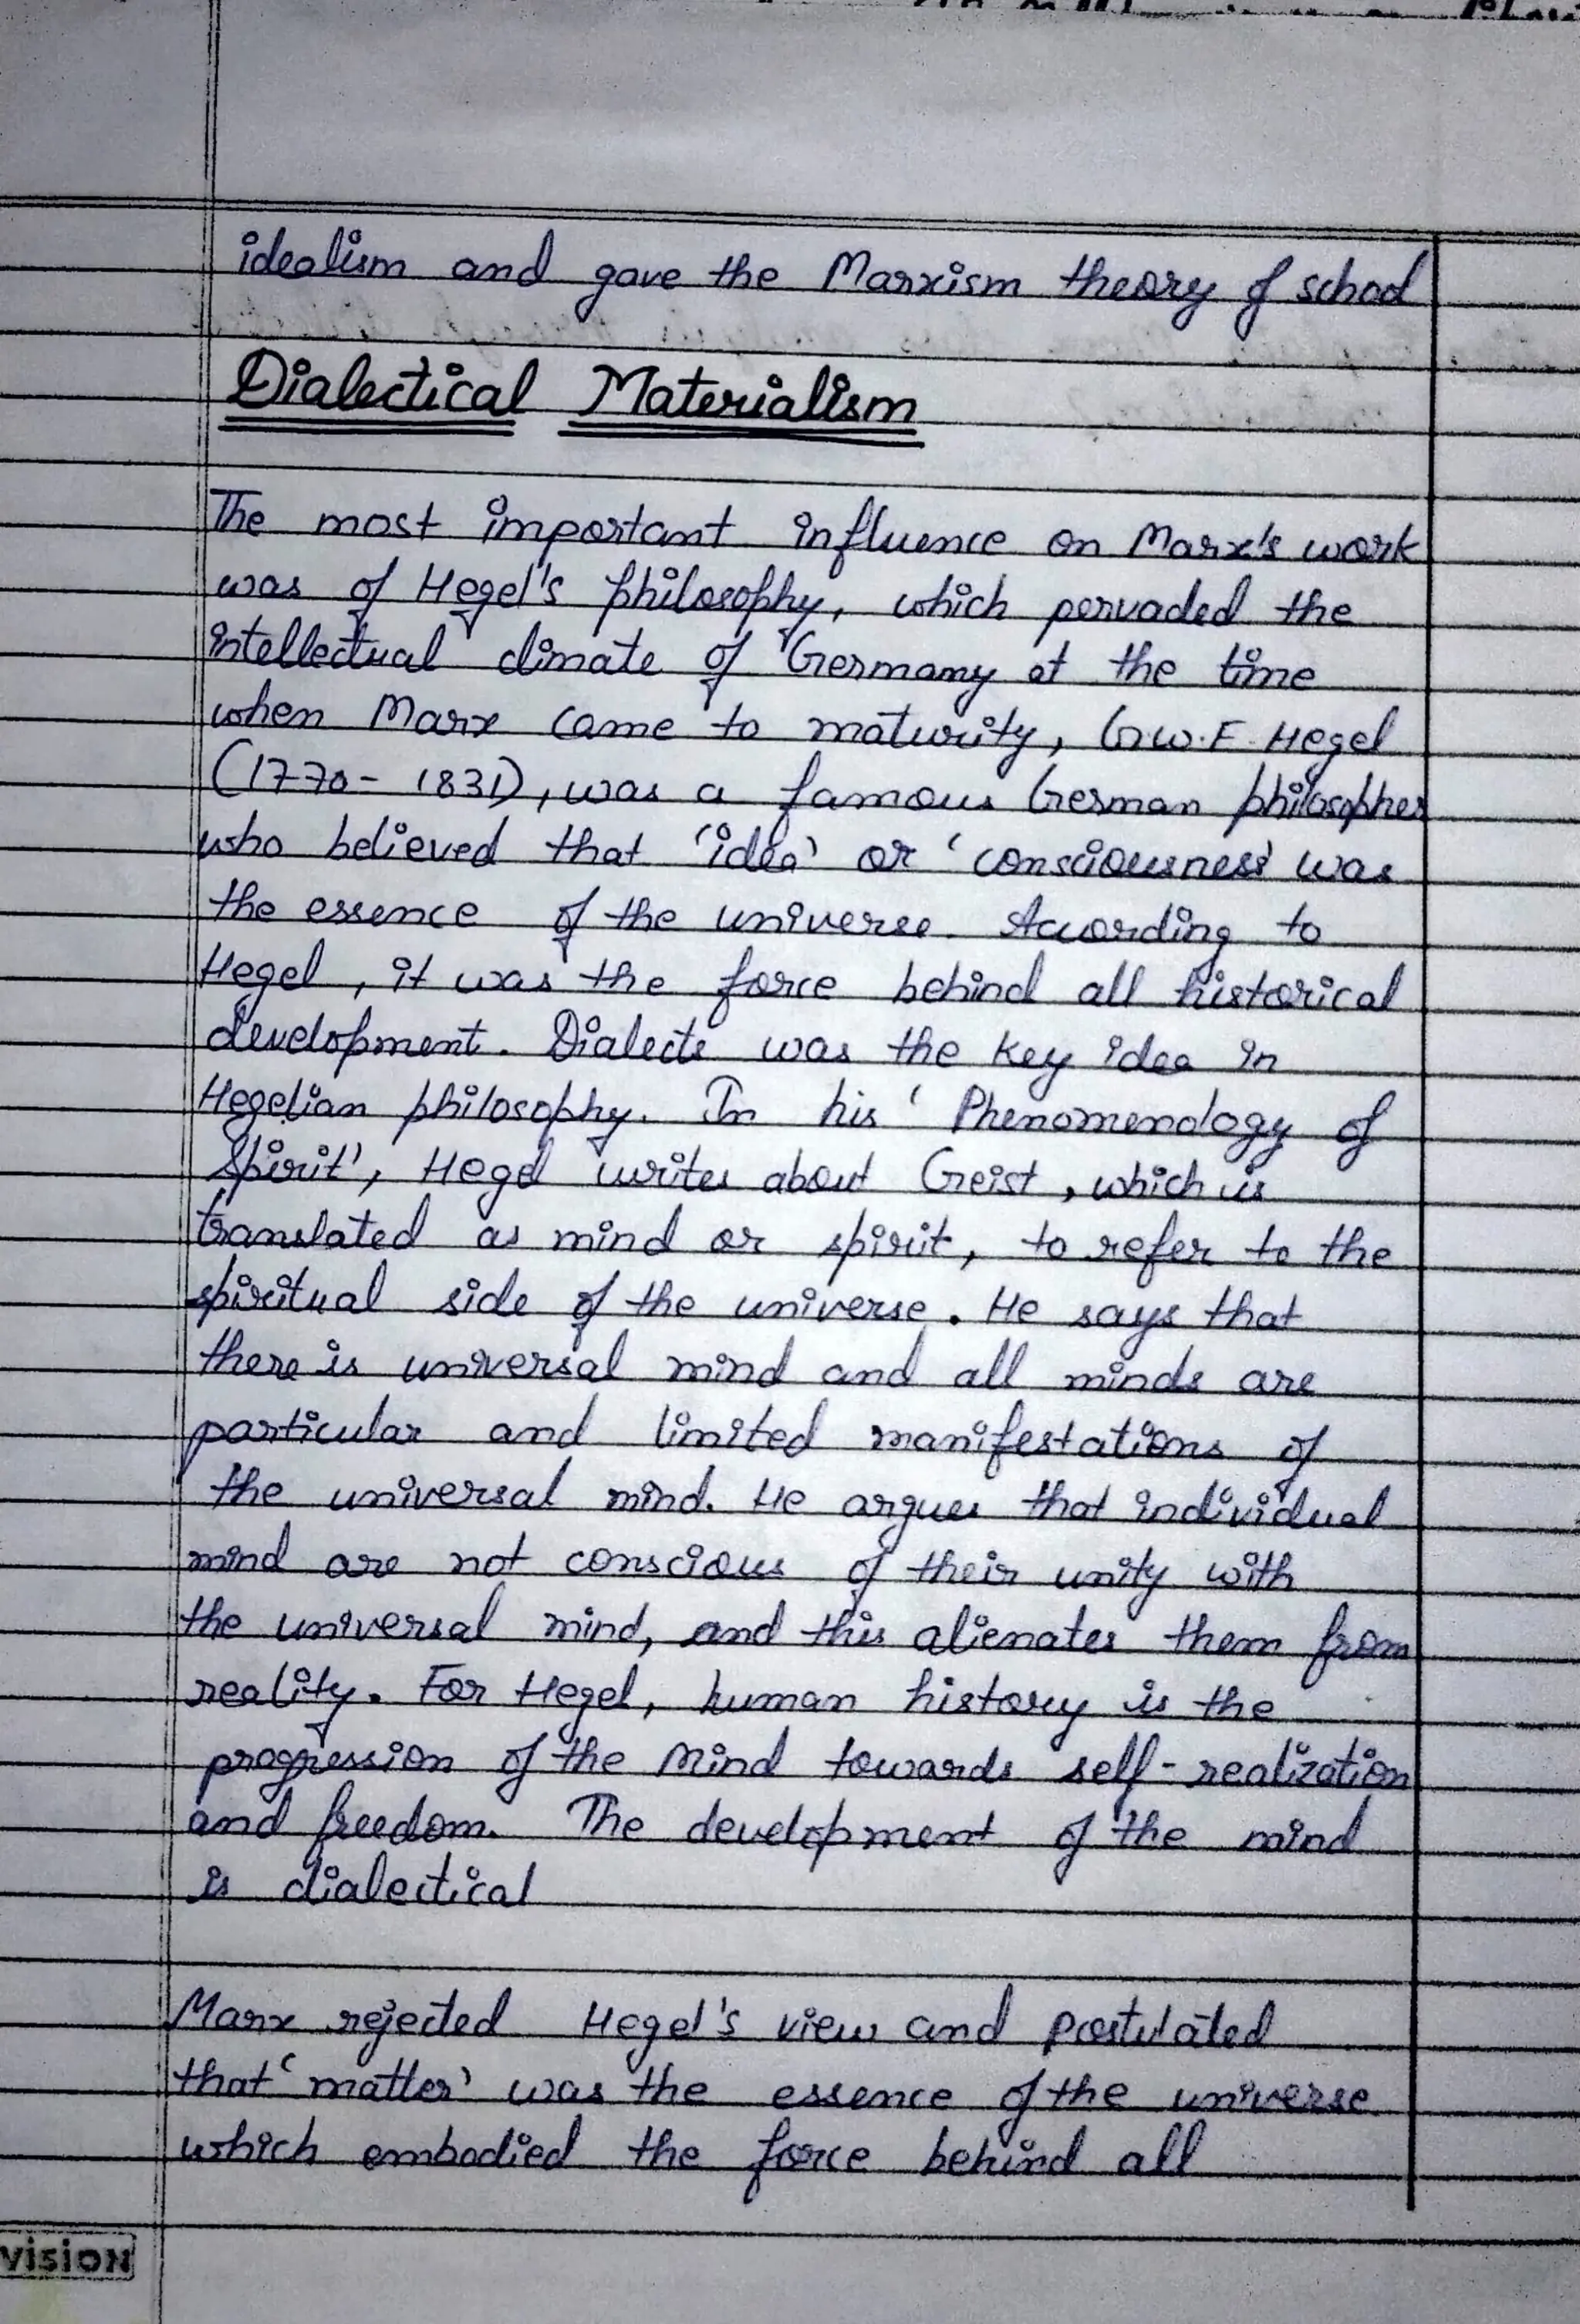 idealism and gave the Marxism theory of school
Dialectical Materialism
The most important influence on Marx's work
was of Hegel's philosophy, which pervaded the
intellectual climate of Germany at the time
when Marx came to maturity, G.W.F. Hegel
(1770- 1831), was a famous German philosopher
who believed that 'idea' or 'consciousness' was
the essence of the universe. According to
Hegel, it was the force behind all historical
development. Dialects was the key idea in
Hegelian philosophy. In his 'Phenomenology of
Spirit', Hegel writes about Geist, which is
translated as mind or spirit, to refer to the
spiritual side of the universe. He says that
there is universal mind and all minds are
particular and limited manifestations of
the universal mind. He argues that individual
mind are not conscious of their unity with
the universal mind, and this alienates them from
reality. For Hegel, human history is the
progression of the Mind towards self-realization
and freedom. The development of the mind
is dialectical
Marx rejected Hegel's view and postulated
that 'matter' was the essence of the universe
which embodied the force behind all
vision